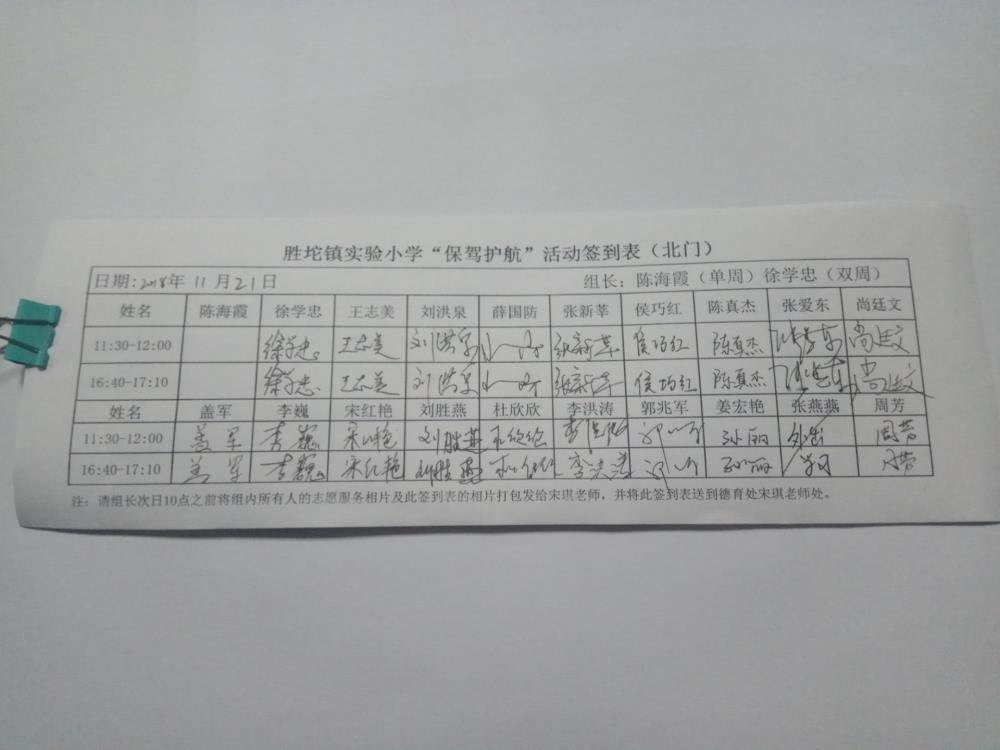 胜坨镇实验小学“保驾护航”活动签到表（北门）
日期:2018年 11月21日 组长：陈海霞（单周）徐学忠（双周）
姓名 陈海霞 徐学忠 王志美 刘洪泉 薛国防 张新莘 侯巧红 陈真杰 张爱东 尚廷文
11:30-12:00 徐学忠 王志美 刘洪泉 张新莘 侯巧红 陈真杰 张爱东 尚廷文
16:40-17:10 徐学忠 王志美 刘洪泉 张新莘 侯巧红 陈真杰 张爱东 尚廷文
姓名 盖军 李巍 宋红艳 刘胜燕 杜欣欣 李洪涛 郭兆军 姜宏艳 张燕燕 周芳
11:30-12:00 盖军 李巍 宋红艳 刘胜燕 李洪涛 孙丽 外出 周芳
16:40-17:10 盖军 李巍 宋红艳 刘胜燕 李洪涛 孙丽 周芳
注：请组长次日10点之前将组内所有人的志愿服务相片及此签到表的相片打包发给宋琪老师，并将此签到表送到德育处宋琪老师处。